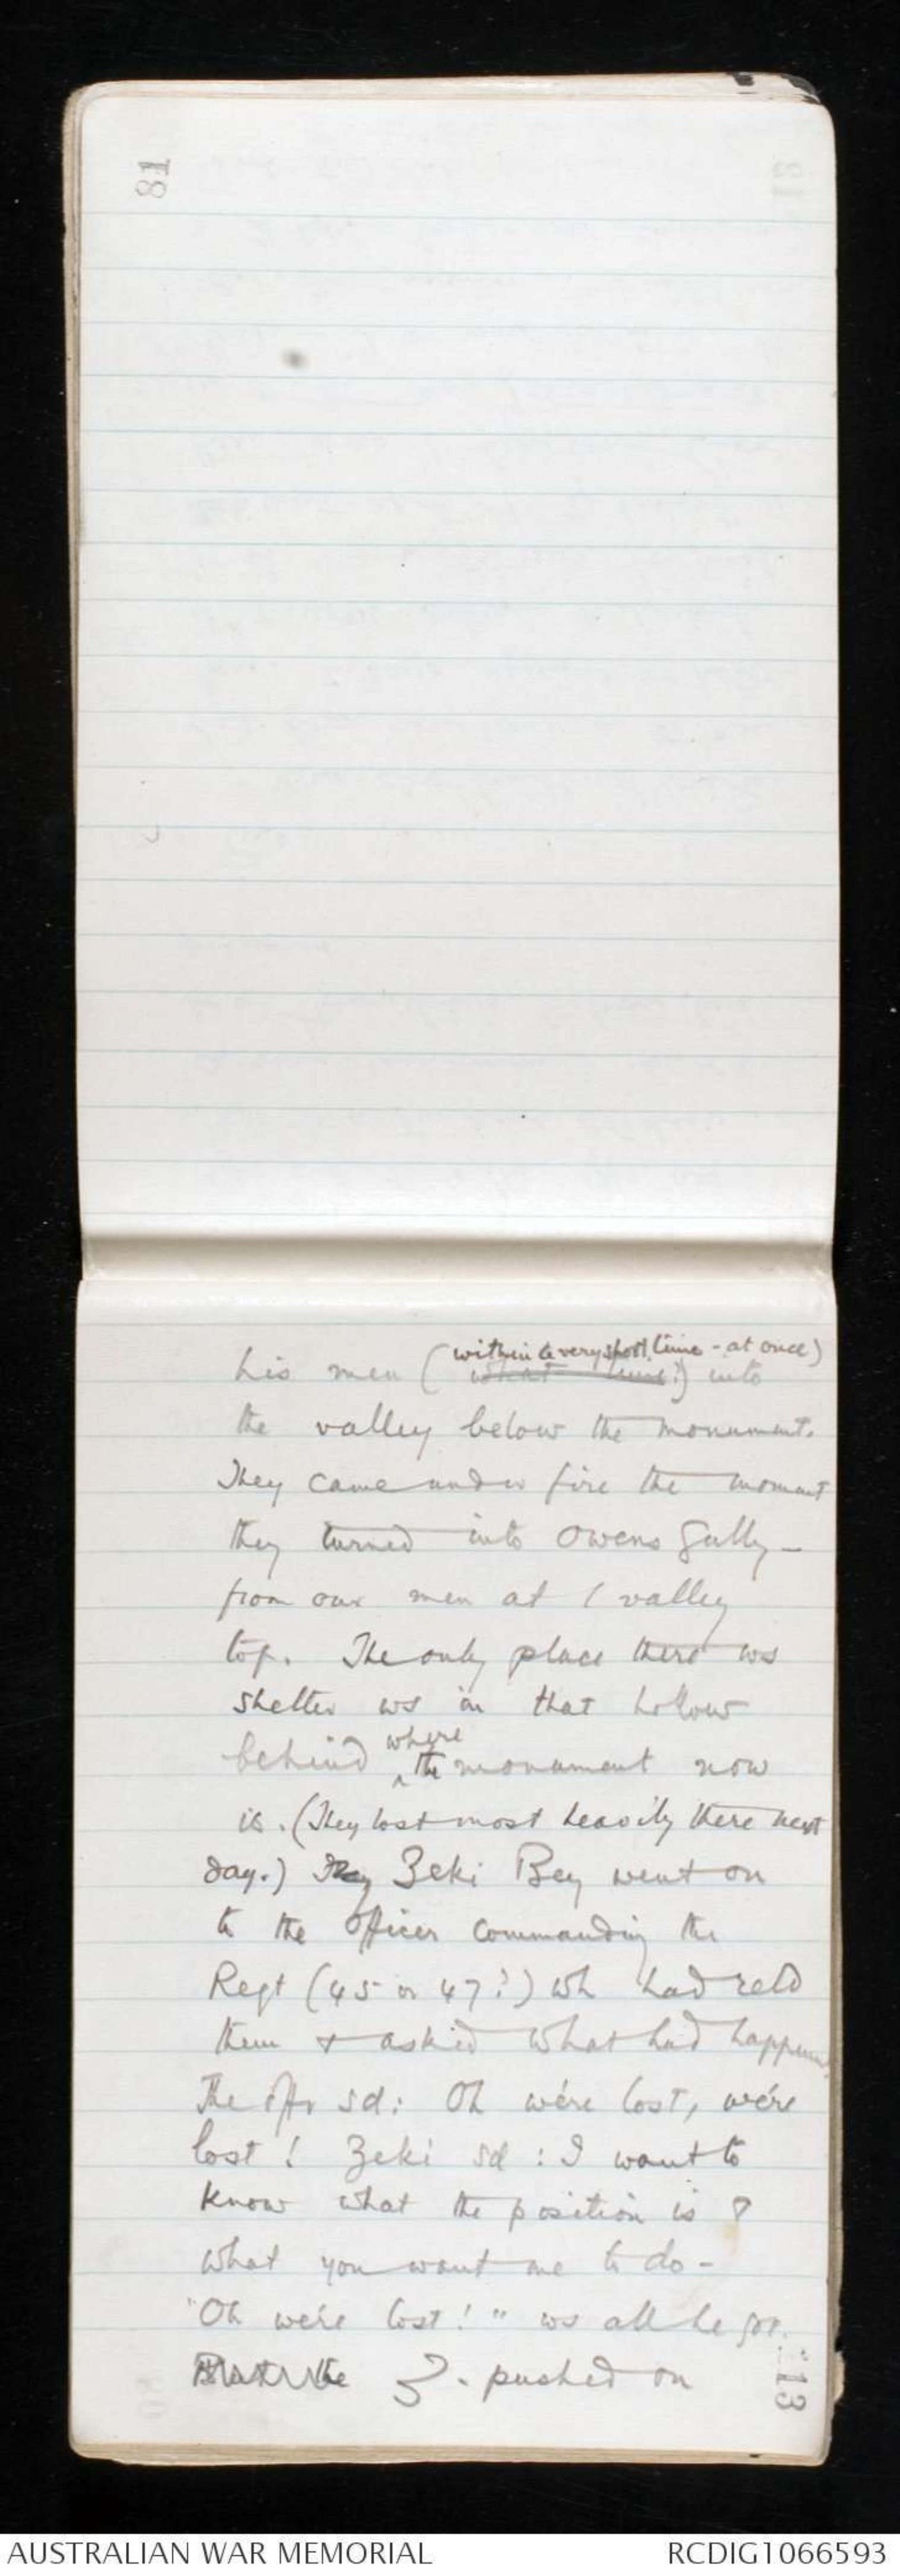 81
his men (within a very short time - at once)
what time?) into
the valley below the monument.
They came under fire the moment
they turned into Owens Gully -
from our men at / valley
top. The only place there ws
shelter ws in that hollow
behind where the monument now
is. (They lost most heavily there next
day.) They Zeki Bey went on
to the officer commanding the
Regt (45 or 47?) wh had reld
them & asked what had happened
The offr sd: Oh we're lost, we're
lost! Zeki sd: I want to
know what the position is &
what you want me to do -
"Oh we're lost!" ws all he got.
Z. pushed on
13
AUSTRALIAN WAR MEMORIAL
RCDIG1066593